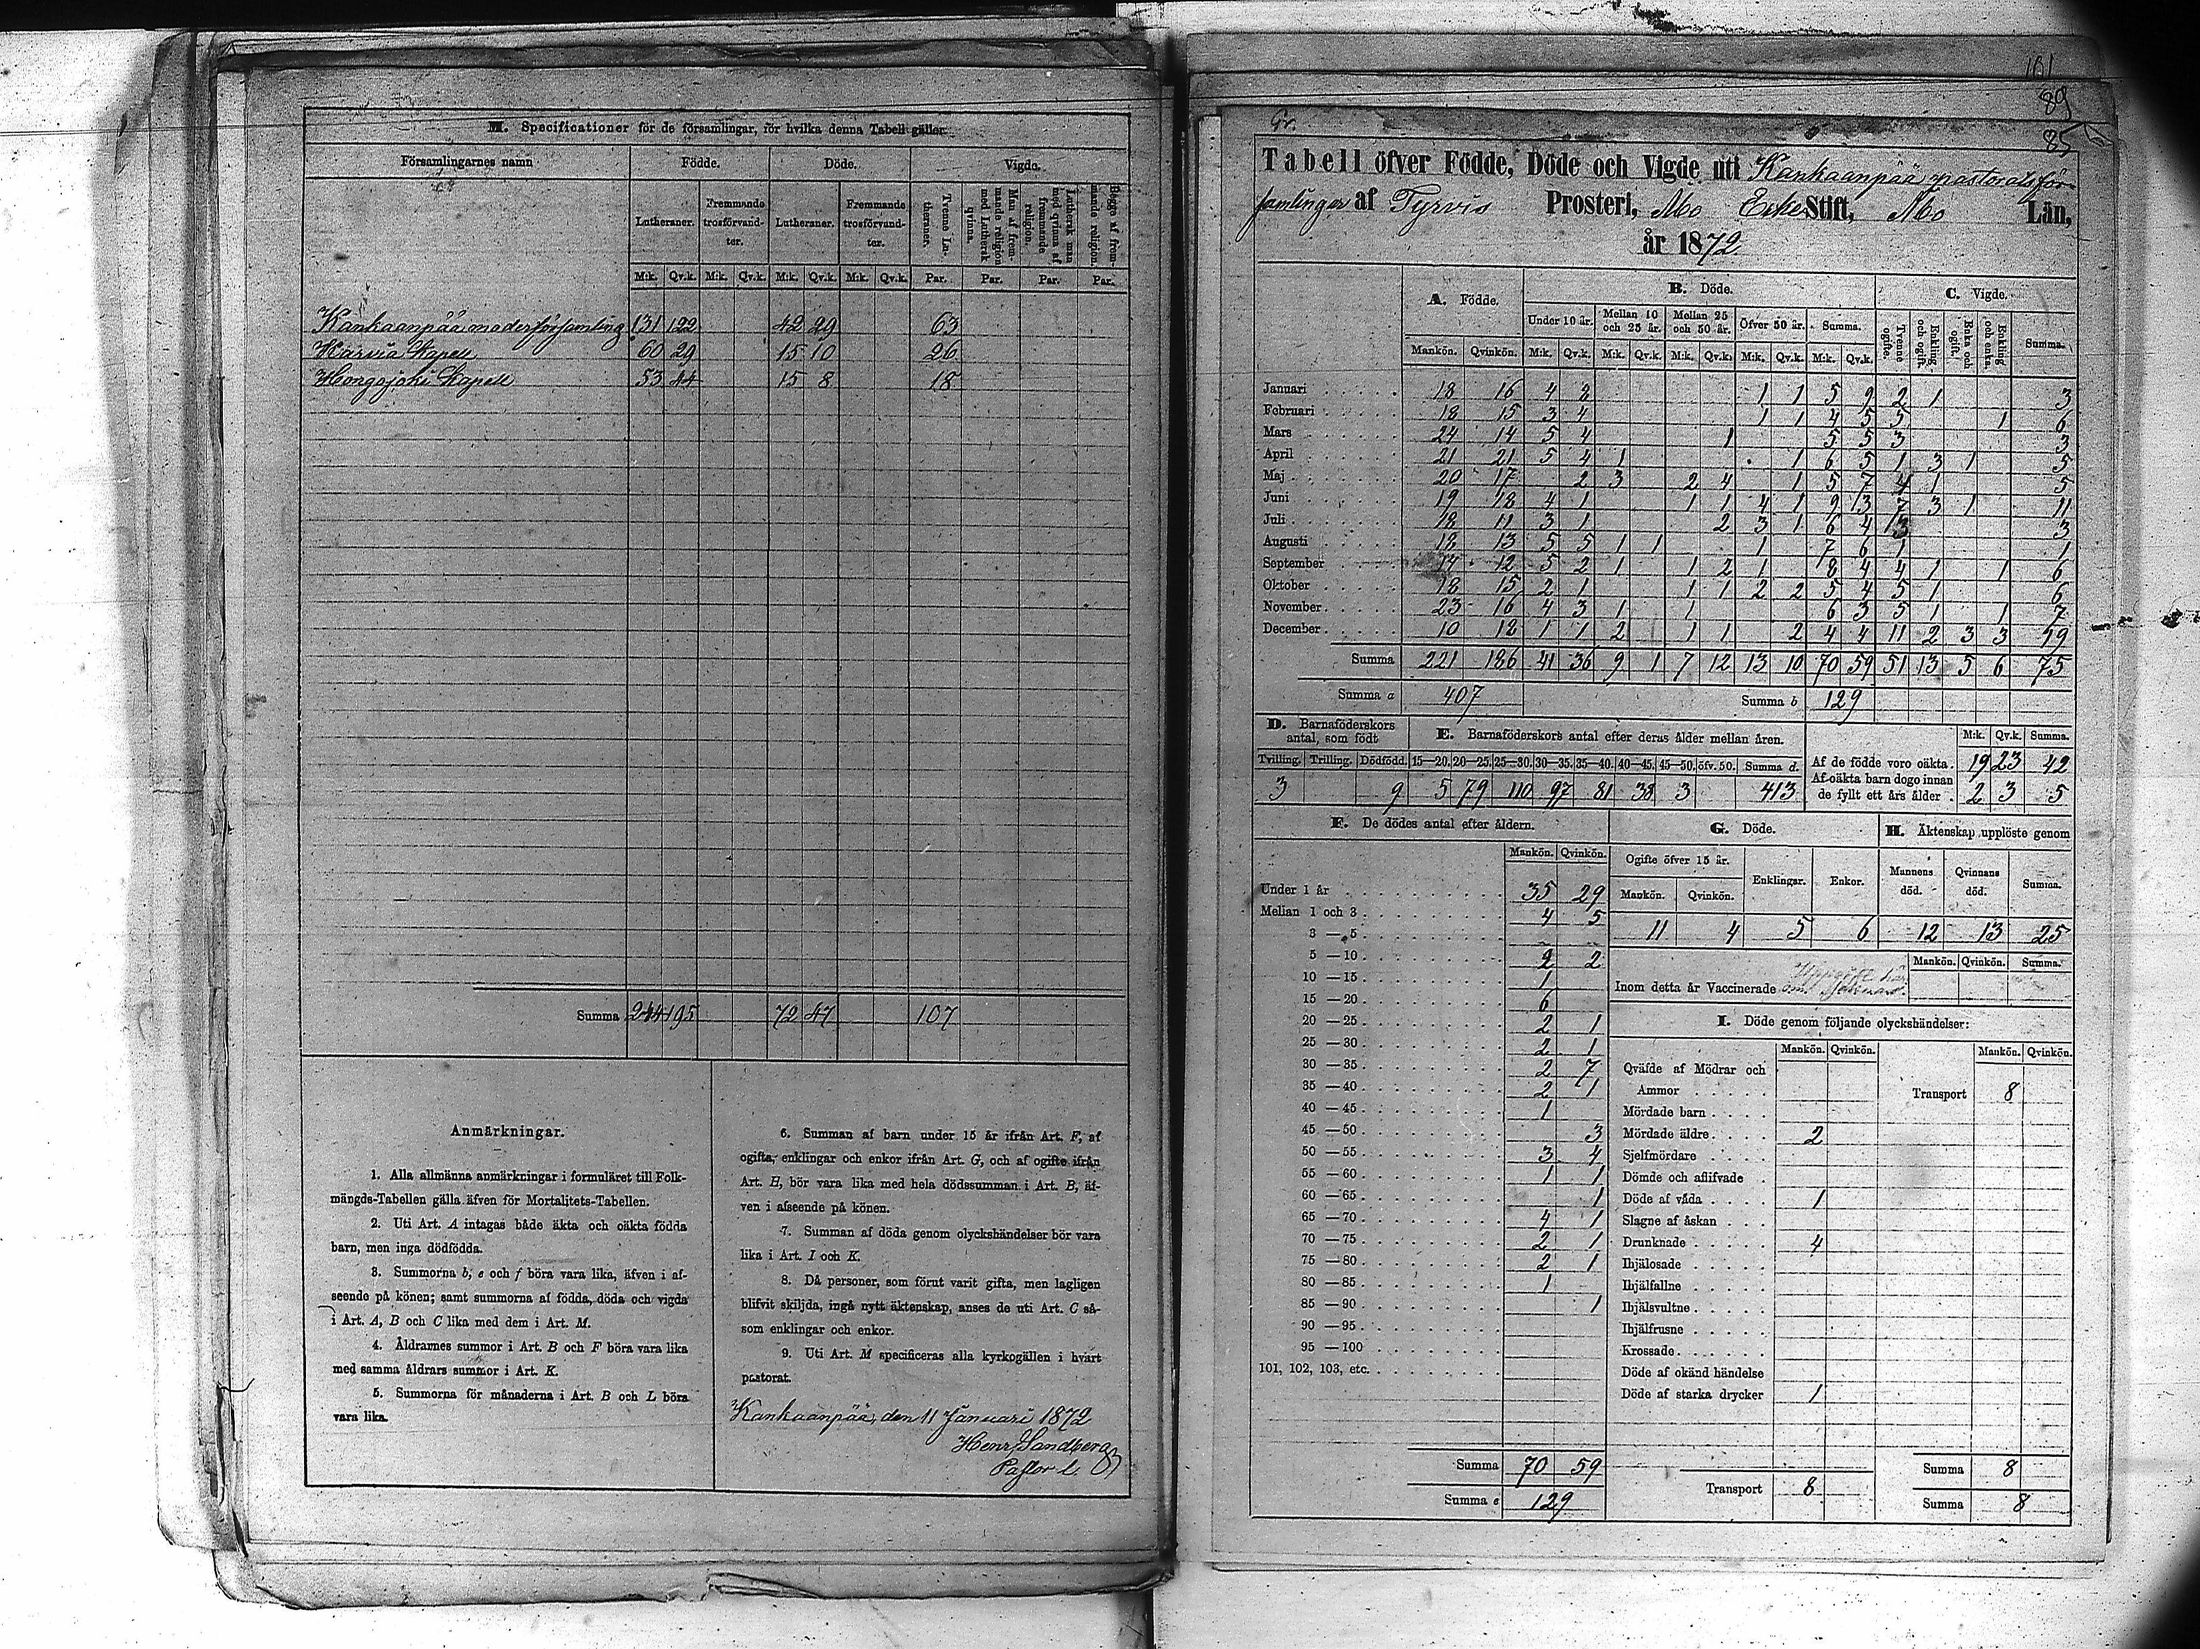 M. Specificationer för de församlingar, för hvilka denna Tabell gäller.
Församlingarnes namn Födde. Döde. Vigde.
Lutheraner. Fremmande trosförvandter. Lutheraner. Fremmande trosförvandter. Tvenne Lutheraner. Man af fremmande religion med Luthersk qvinna. Luthersk man med qvinna af fremmande religion. Begge af fremmande religion.
M:k. Qv.k. M:k. Qv.k. M:k. Qv.k. M:k. Qv.k. Par. Par. Par. Par.
Kankaanpää moderförsamling 131 122 42 29 63
Karvia Kapell 60 29 15 10 26
Hongojoki Kapell 53 44 15 8 18
Summa 244 195 72 47 107
Anmärkningar.
1. Alla allmänna anmärkningar i formuläret till Folk-
mängds-Tabellen gälla äfven för Mortalitets-Tabellen.
2. Uti Art. A intagas både äkta och oäkta födda
barn, men inga dödfödda.
3. Summorna b, e och f böra vara lika, äfven i af-
seende på könen; samt summorna af födda, döda och vigda
i Art. A, B och C lika med dem i Art. M.
4. Åldrarnes summor i Art. B och F böra vara lika
med samma åldrars summor i Art. K.
5. Summorna för månaderna i Art. B och L böra
vara lika.
6. Summan af barn under 15 år ifrån Art. F, af
ogifta, enklingar och enkor ifrån Art. G, och af ogifte ifrån
Art. H, bör vara lika med hela dödssumman i Art. B, äf-
ven i afseende på könen.
7. Summan af döda genom olyckshändelser bör vara
lika i Art. I och K.
8. Då personer, som förut varit gifta, men lagligen
blifvit skiljda, ingå nytt äktenskap, anses de uti Art. C så-
som enklingar och enkor.
9. Uti Art. M specificeras alla kyrkogällen i hvart
pastorat.
Kankaanpää, den 11 Januari 1872
Henr. Sandberg
Pastor l.
101
89
85
Gr.
Tabell öfver Födde, Döde och Vigde uti Kankaanpää pastorats för-
samlingar af Tyrvis Prosteri, Åbo Erke Stift, Åbo Län,
år 1872.
A. Födde. B. Döde. C. Vigde.
Under 10 år. Mellan 10 och 25 år. Mellan 25 och 50 år. Öfver 50 år. Summa. Tvenne ogifte. Enkling och ogift. Enka och ogift. Enkling och enka. Summa.
Mankön. Qvinkön. M:k. Qv.k. M:k. Qv.k. M:k. Qv.k. M:k. Qv.k. M:k. Qv.k.
Januari 18 16 4 2 1 1 5 9 2 1 3
Februari 18 15 3 4 1 1 4 5 5 1 6
Mars 24 14 5 4 1 5 5 3 3
April 21 21 5 4 1 1 6 5 1 3 1 5
Maj 20 17 2 3 2 4 1 5 7 4 1 5
Juni 19 18 4 1 1 1 4 1 9 3 7 3 1 11
Juli 18 11 3 1 2 3 1 6 4 3 3
Augusti 12 13 5 5 1 1 1 7 6 1 1
September 17 12 5 2 1 1 2 1 8 4 4 1 1 6
Oktober 18 15 2 1 1 1 2 2 5 4 5 1 6
November 23 16 4 3 1 1 6 3 5 1 1 7
December 10 12 1 1 2 1 1 2 4 4 11 2 3 3 19
Summa 221 186 41 36 9 1 7 12 13 10 70 59 51 13 5 6 75
Summa a 407 Summa b 129
D. Barnaföderskors antal, som födt E. Barnaföderskors antal efter deras ålder mellan åren. M:k. Qv.k. Summa.
Tvilling. Trilling. Dödfödd. 15—20. 20—25. 25—30. 30—35. 35—40. 40—45. 45—50. öfv. 50. Summa d.
3 9 5 79 110 97 81 38 3 413
Af de födde voro oäkta. 19 23 42
Af oäkta barn dogo innan
de fyllt ett års ålder. 2 3 5
F. De dödes antal efter åldern.
Mankön. Qvinkön.
Under 1 år 35 29
Mellan 1 och 3 4 5
3 — 5
5 — 10 2 2
10 — 15 1
15 — 20 6
20 — 25 2 1
25 — 30 2 1
30 — 35 2 7
35 — 40 2 1
40 — 45 1
45 — 50 3
50 — 55 3 4
55 — 60 1 1
60 — 65 1
65 — 70 4 1
70 — 75 2 1
75 — 80 2 1
80 — 85 1
85 — 90 1
90 — 95
95 — 100
101, 102, 103, etc.
Summa 70 59
Summa e 129
G. Döde.
Ogifte öfver 15 år. Enklingar. Enkor.
Mankön. Qvinkön.
11 4 5 6
H. Äktenskap upplöste genom
Mannens död. Qvinnans död. Summa.
12 13 25
Mankön. Qvinkön. Summa.
Inom detta år Vaccinerade
I. Döde genom följande olyckshändelser:
Mankön. Qvinkön. Mankön. Qvinkön.
Qväfde af Mödrar och
Ammor
Transport 8
Mördade barn
Mördade äldre 2
Sjelfmördare
Dömde och aflifvade
Döde af våda 1
Slagne af åskan
Drunknade 4
Ihjälosade
Ihjälfallne
Ihjälsvultne
Ihjälfrusne
Krossade
Döde af okänd händelse
Döde af starka drycker 1
Transport 8
Summa 8
Summa 8